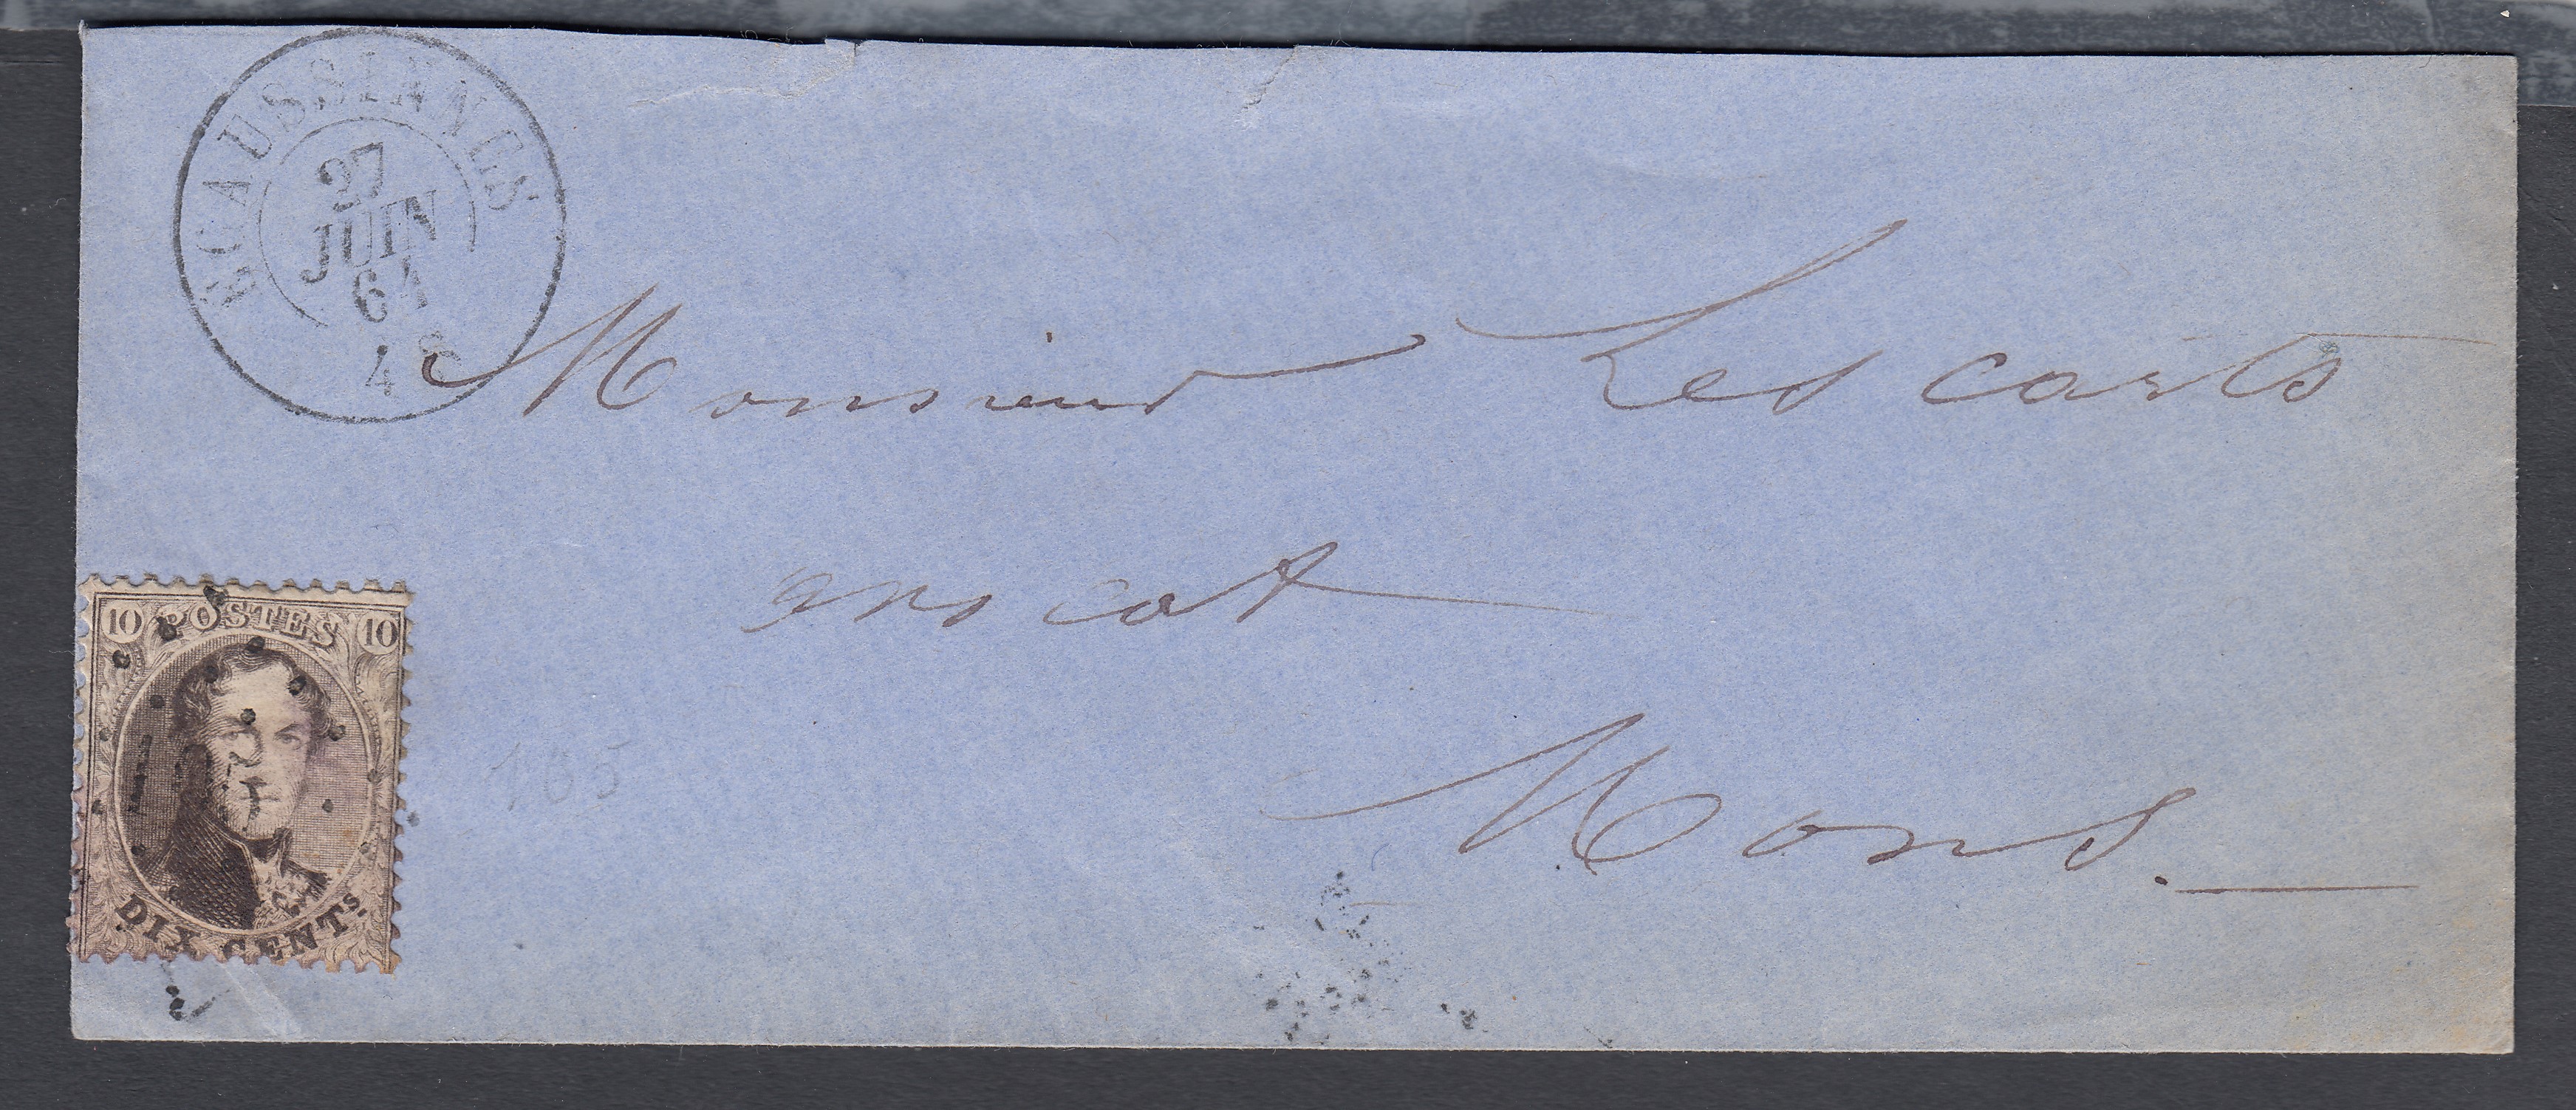 ECAUSSINNES
27
JUIN
64
4 S
Monsieur Lescarts
avocat
Mons.
10 POSTES 10
DIX CENTS.
165